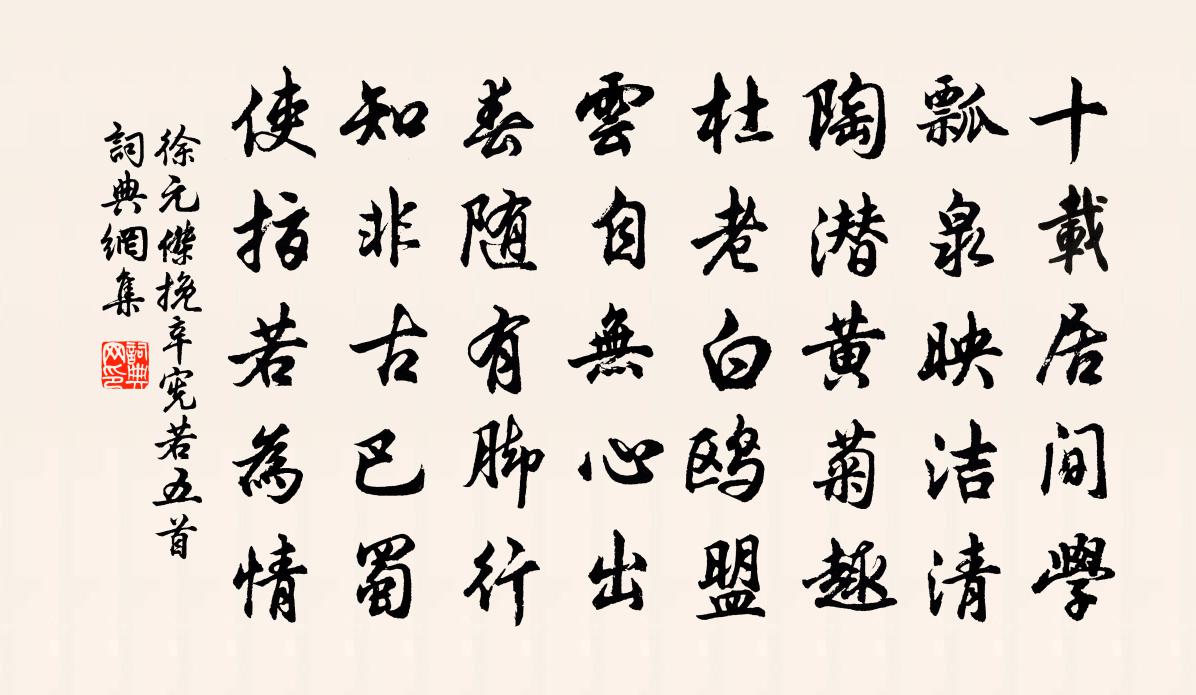 十載居间學
瓢泉映洁清
陶潜黄菊趣
杜老白鸥盟
雲自無心出
春随有脚行
知非古巴蜀
使指若為情
徐元傑挽辛宪若五首
詞典網集
詞典网印